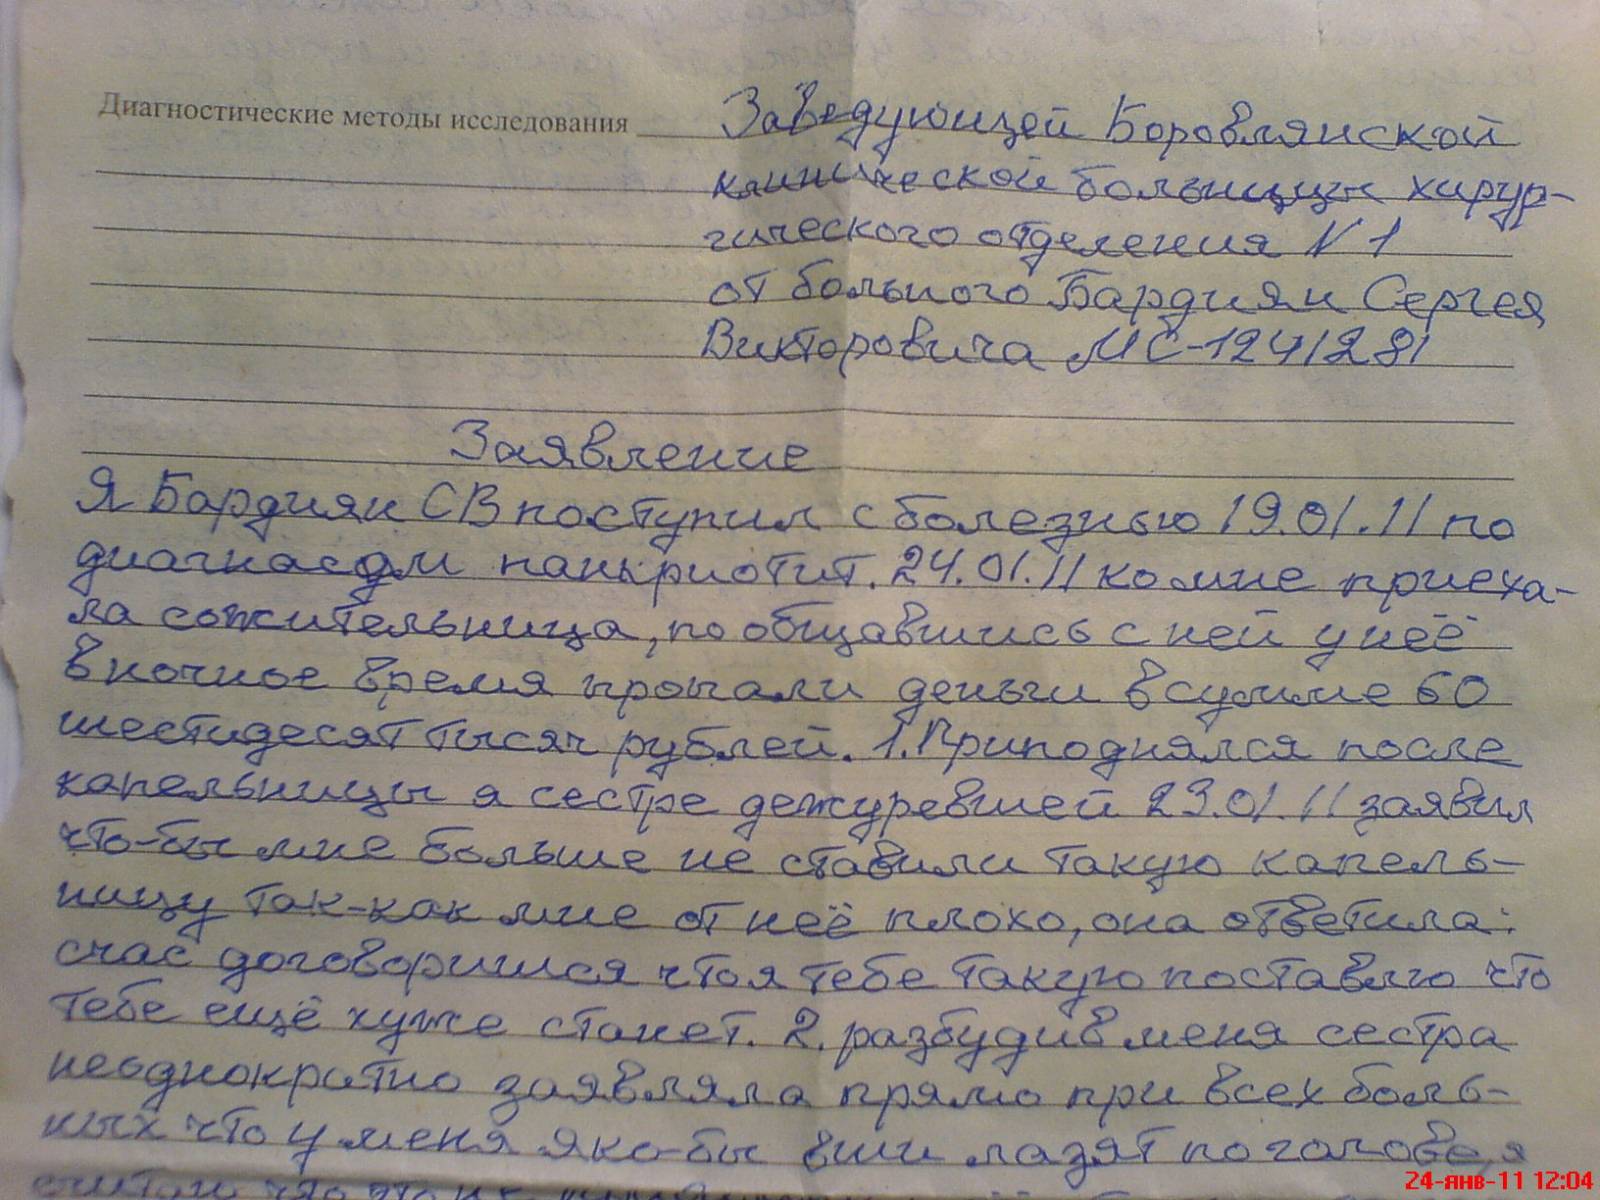 Диагностические методы исследования
Заведующей Боровлянской
клинической больницы хирур-
гического отделения N 1
от больного Бардиян Сергея
Викторовича МС-1241281
Заявление
Я Бардиян СВ поступил с болезнью 19.01.11 по
диагнасом панкриотит. 24.01.11 ко мне приеха-
ла сожительница, пообщавшись с ней у неё
в ночное время пропали деньги в сумме 60
шестидесят тысяч рублей. 1. Приподнялся после
капельницы я сестре дежуревшей 23.01.11 заявил
что-бы мне больше не ставили такую капель-
ницу так-как мне от неё плохо, она ответила:
счас договоришся что я тебе такую поставлю что
тебе ещё хуже станет. 2. разбудив меня сестра
неоднократно заявляла прямо при всех боль-
ных что у меня яко-бы вши лазят по голове, я
считаю что это не
24-янв-11 12:04